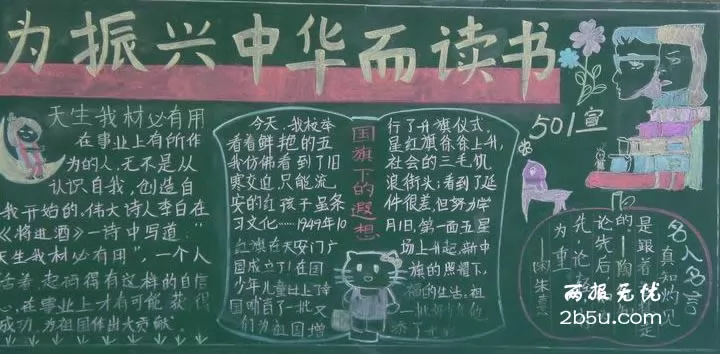 为振兴中华而读书
天生我材必有用
在事业上有所作
为的人,无不是从
认识自我,创造自
我开始的,伟大诗人李白在
《将进酒》一诗中写道:“
天生我材必有用”一个人
活着,起码得有这样的自信
心,在事业上才有可能获得
成功,为祖国作出大贡献.
国旗下的遐想
今天,我校举
看着鲜艳的五
我仿佛看到了旧
寒交迫,只能流
安的红孩子虽条
习文化……1949年10
红旗在天安门广
国成立了!在国
少年儿童
国哺育了一批又
们为祖国增
行了升旗仪式,
星红旗徐徐上升,
社会的三毛饥
浪街头;看到了延
件很差,但努力学
月1日,第一面五星
场上升起,新中
旗的照耀下,
福的生活,祖
一批
添了
501宣
名人名言
真知灼见
是跟着
的——陶
论先后
先,论
为重.
——宋朱熹
两报无忧
2b5u.com